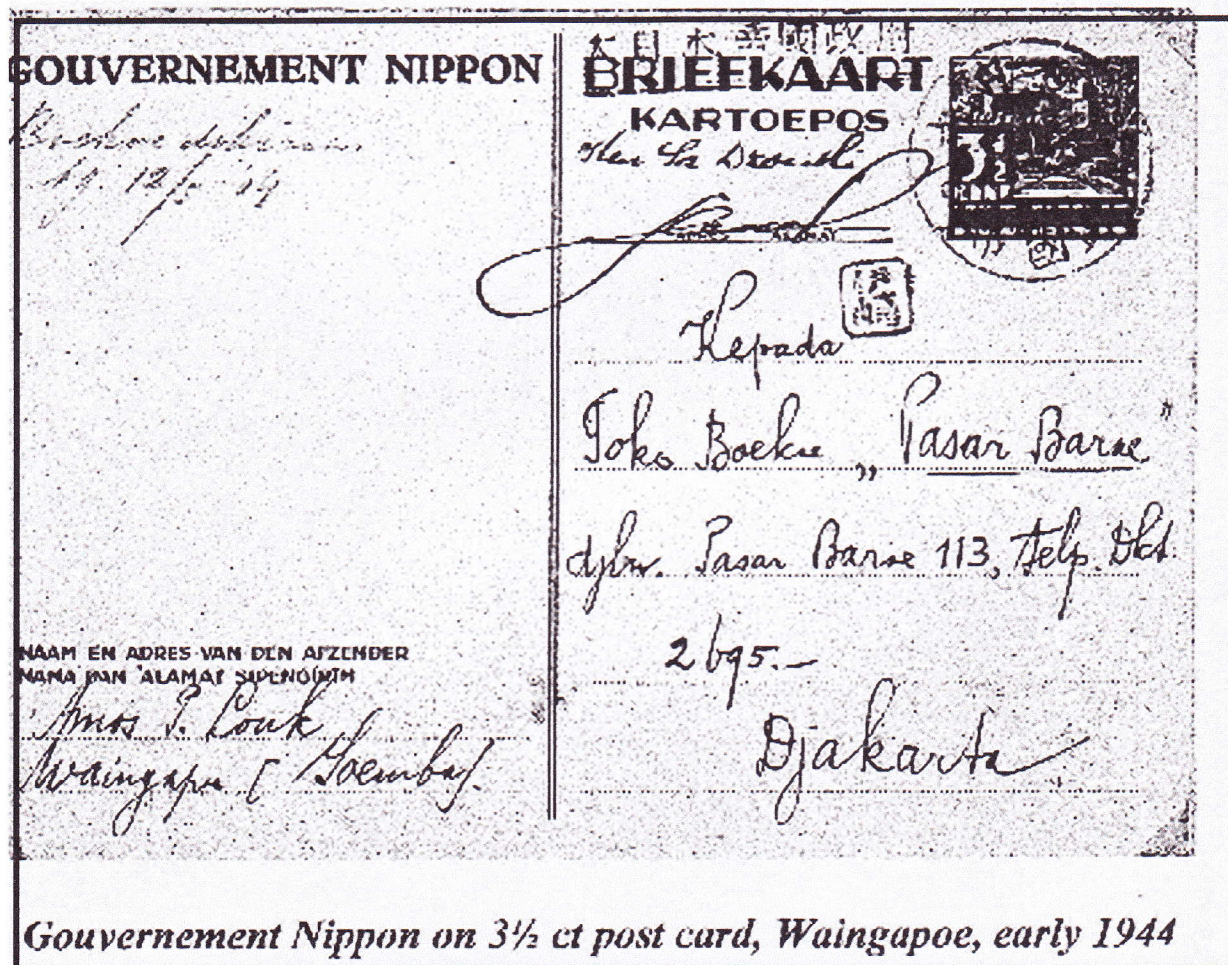 GOUVERNEMENT NIPPON
12/ '19
NAAM EN ADRES VAN DEN AFZENDER
NAMA DAN 'ALAMAT SIPENGIRIM
Amos P. Louk
Waingapu (Soemba).
大日本帝國政府
BRIEFKAART
KARTOEPOS
3½
Kepada
Toko Boekoe „Pasar Baroe"
djln. Pasar Baroe 113, Telp. Dkt.
2695.—
Djakarta
Gouvernement Nippon on 3½ ct post card, Waingapoe, early 1944